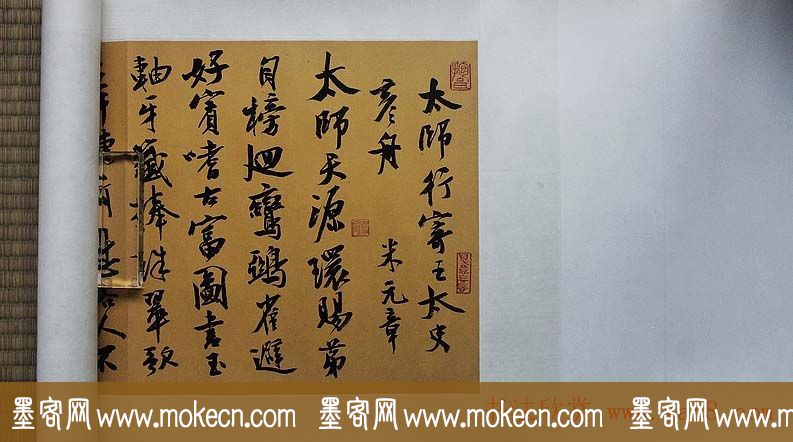 太師行寄王太史
彦舟 米元章
太師天源環賜第
自榜廻鸞鵶雀避
好賓嗜古富圖書玉
軸牙籤捧珠翠歌
人不
墨客网 www.mokecn.com 墨客网 www.mokecn.com 墨客网 www.m